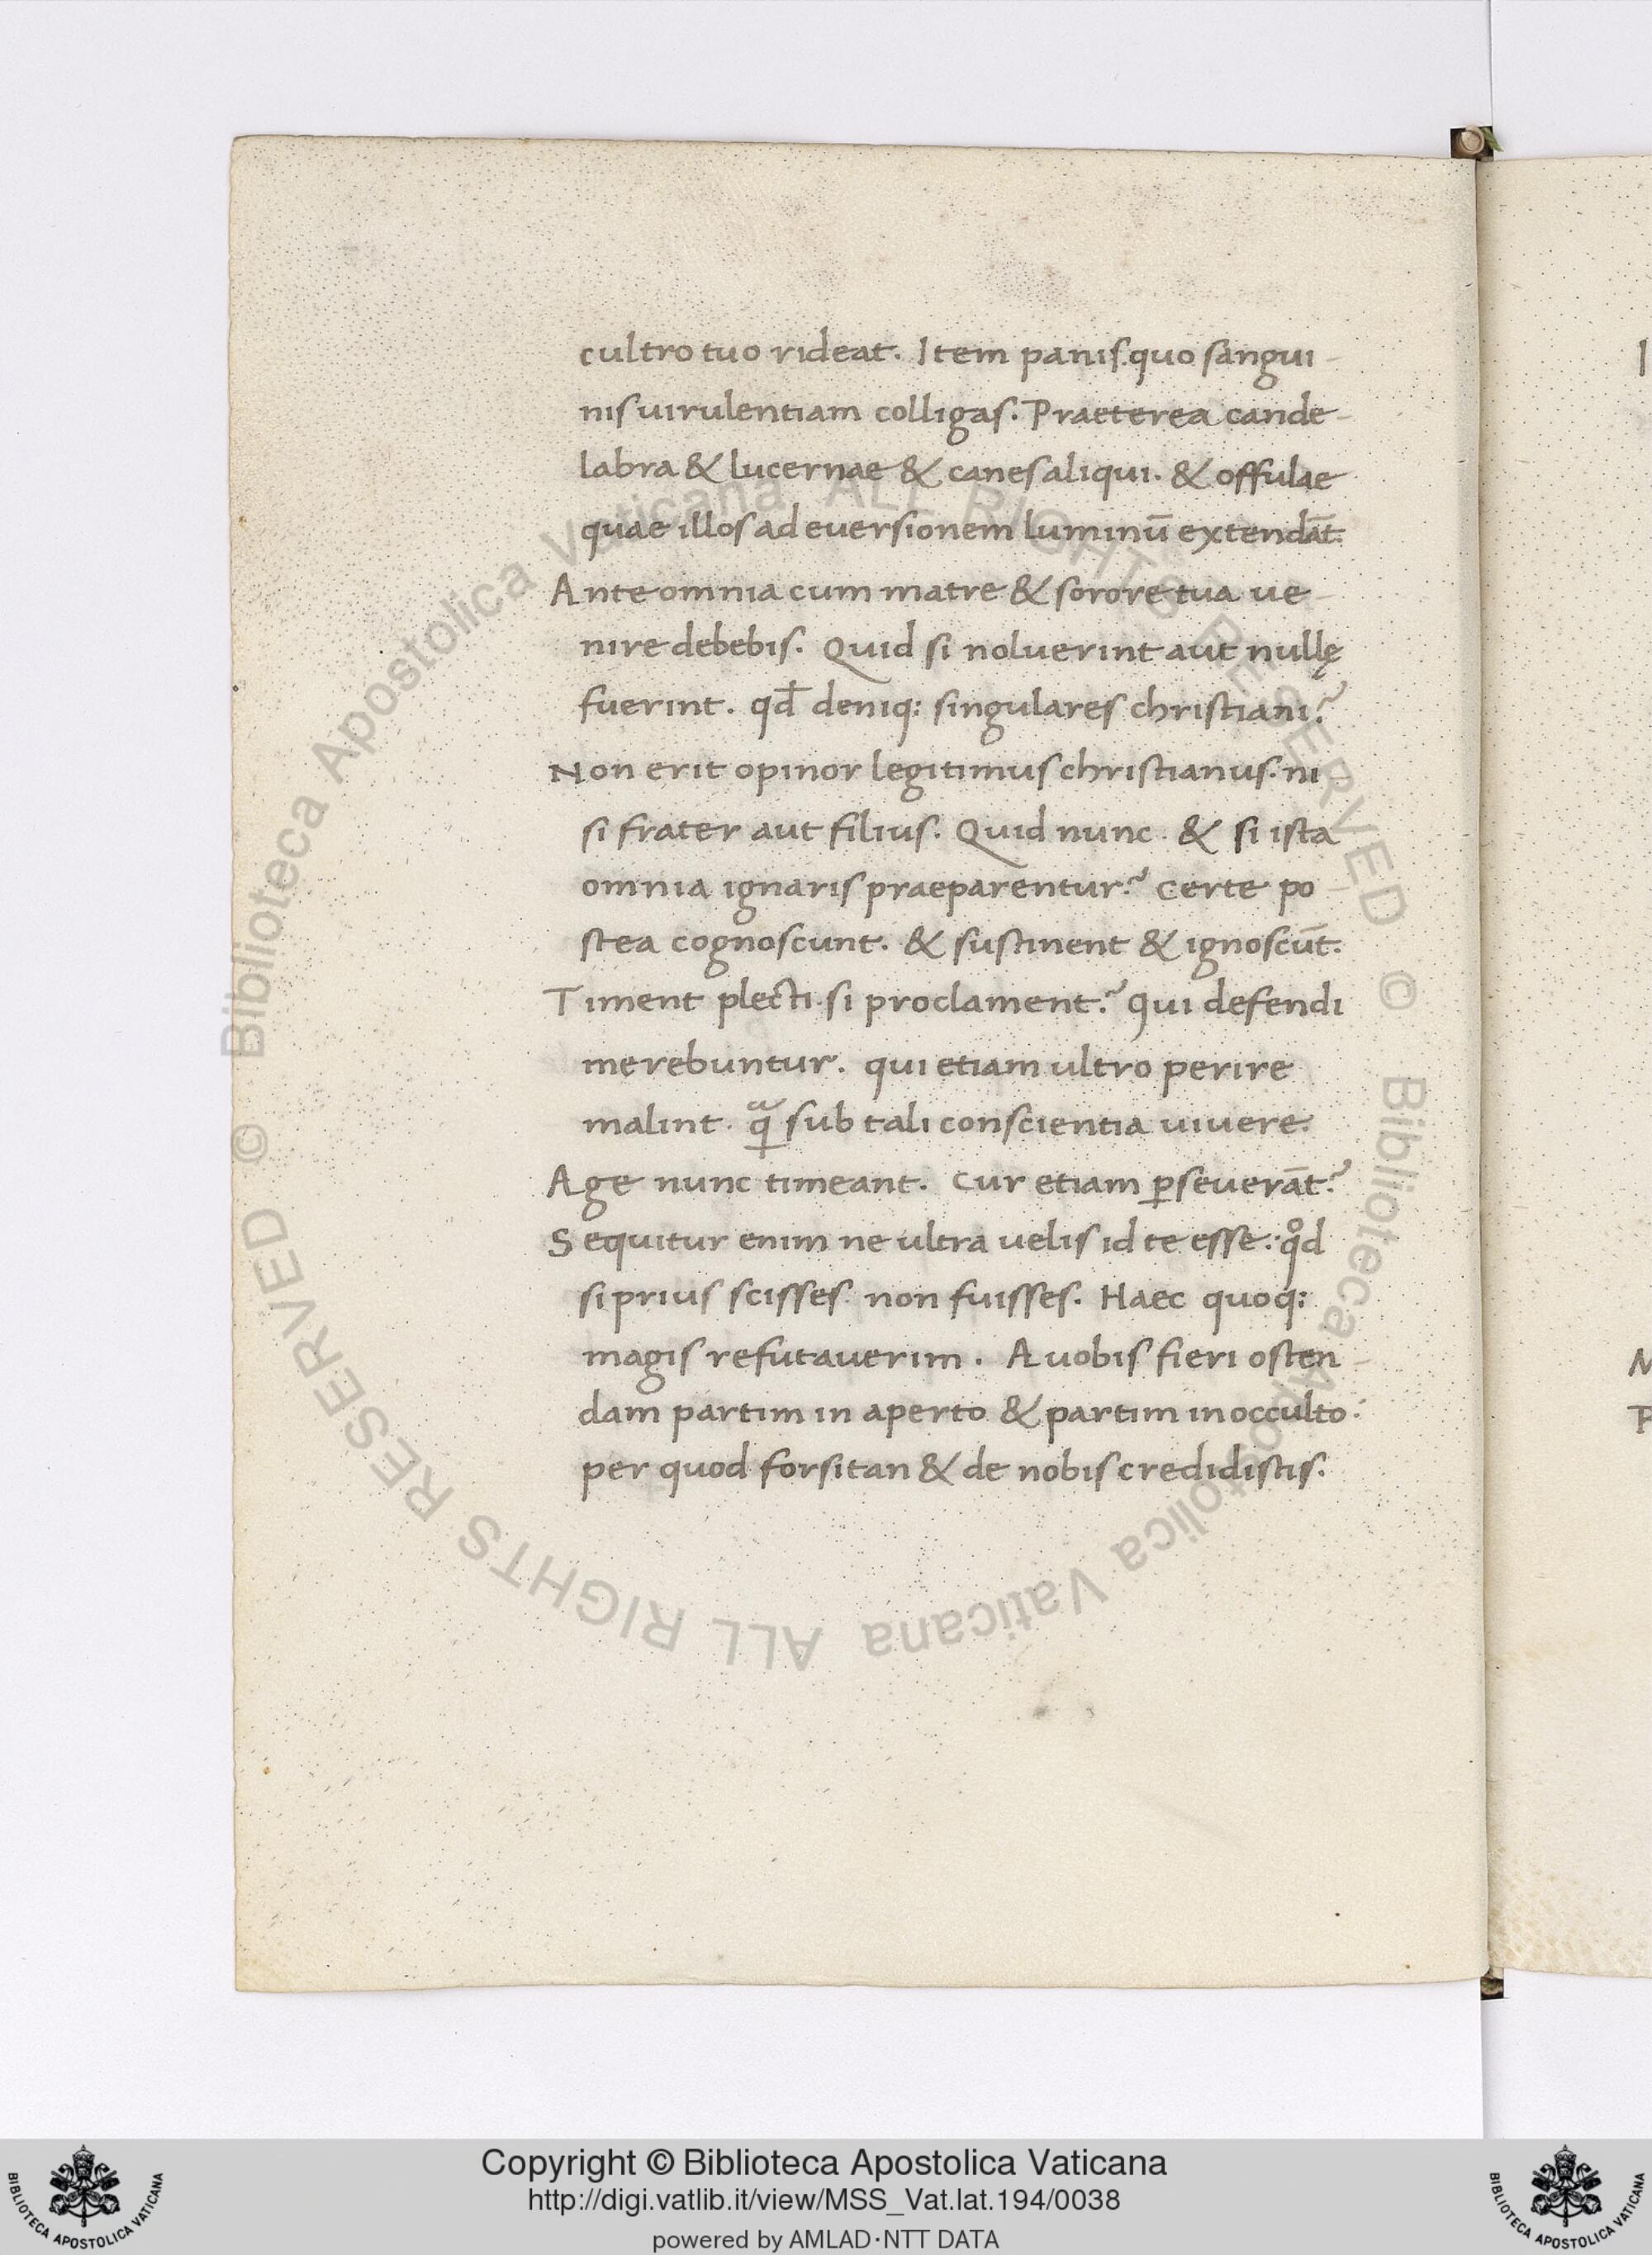 cultro tuo rideat. Item panis. quo sangui-
nis uirulentiam colligas. Praeterea cande-
labra & lucernae & canes aliqui. & offulae
quae illos ad euersionem luminū extendāt.
Ante omnia cum matre & sorore tua ue-
nire debebis. Quid si noluerint aut nullę
fuerint. qđ deniq: singulares christiani?
Non erit opinor legitimus christianus. ni-
si frater aut filius. Quid nunc. & si ista
omnia ignaris praeparentur? Certe po-
stea cognoscunt. & sustinent & ignoscūt.
Timent plecti. si proclament? qui defendi
merebuntur. qui etiam ultro perire
malint. qᵃ sub tali conscientia uiuere.
Age nunc timeant. Cur etiam ꝑseuerāt?
Sequitur enim ne ultra uelis id te esse: qͦd
si prius scisses. non fuisses. Haec quoq:
magis refutauerim. A uobis fieri osten-
dam partim in aperto & partim in occulto:
per quod forsitan & de nobis credidistis.
© Biblioteca Apostolica Vaticana ALL RIGHTS RESERVED
© Biblioteca Apostolica Vaticana ALL RIGHTS RESERVED
Copyright © Biblioteca Apostolica Vaticana
http://digi.vatlib.it/view/MSS_Vat.lat.194/0038
powered by AMLAD·NTT DATA
BIBLIOTECA APOSTOLICA VATICANA
BIBLIOTECA APOSTOLICA VATICANA